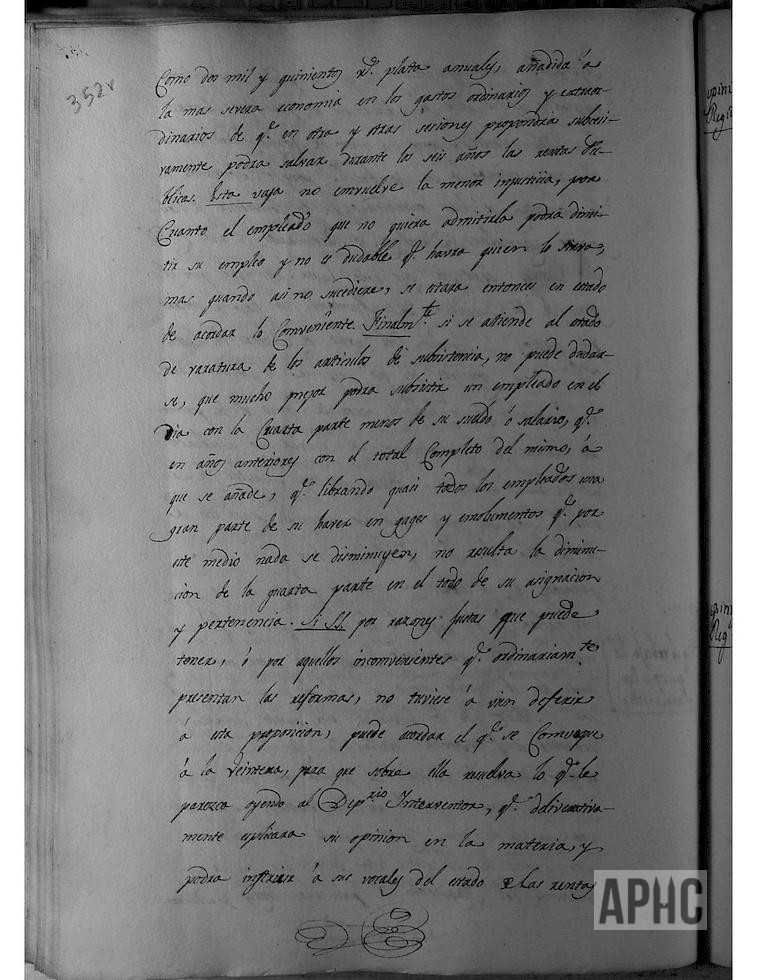 352v
Como dos mil y quinientos r.s plata anuales, añadida á
la mas severa economia en los gastos ordinarios y extraor-
dinarios de q.e en otra y otras sesiones propondra subcesi-
vamente podra salvar durante los seis años las rentas Pu-
blicas. Esta vaja no emvuelve la menor injusticia, por
Cuanto el empleado que no quiera admitirla podra dimi-
tir su empleo y no es dudable q.e havra quien lo sirva,
mas quando asi no sucediere, se estara entonces en estado
de acordar lo Conveniente. Finalm.te si se atiende al estado
de varatura de los articulos de subsistencia, no puede dudar-
se, que mucho mejor podra subsistir un empleado en el
dia con la Cuarta parte menos de su sueldo ó salario, q.e
en años anteriores con el total Completo del mismo, á
que se añade, q.e librando quasi todos los empleados una
gran parte de su haver en gages y emolumentos q.e por
este medio nada se disminuyen, no resulta la diminu-
cion de la quarta parte en el todo de su asignacion
y pertenencia. Si SS. por razones justas que puede
tener, ó por aquellos inconvenientes q.e ordinariam.te
presentan las reformas, no tuviese á vien deferir
á esta proposicion, puede acordar el q.e se Comvoque
á la Veintena, para que sobre ella resuelva lo q.e le
parezca oyendo al Dep.rio Interventor, q.e deliverativa-
mente esplicara su opinion en la materia, y
podra instruir á sus vocales del estado de las rentas
APHC